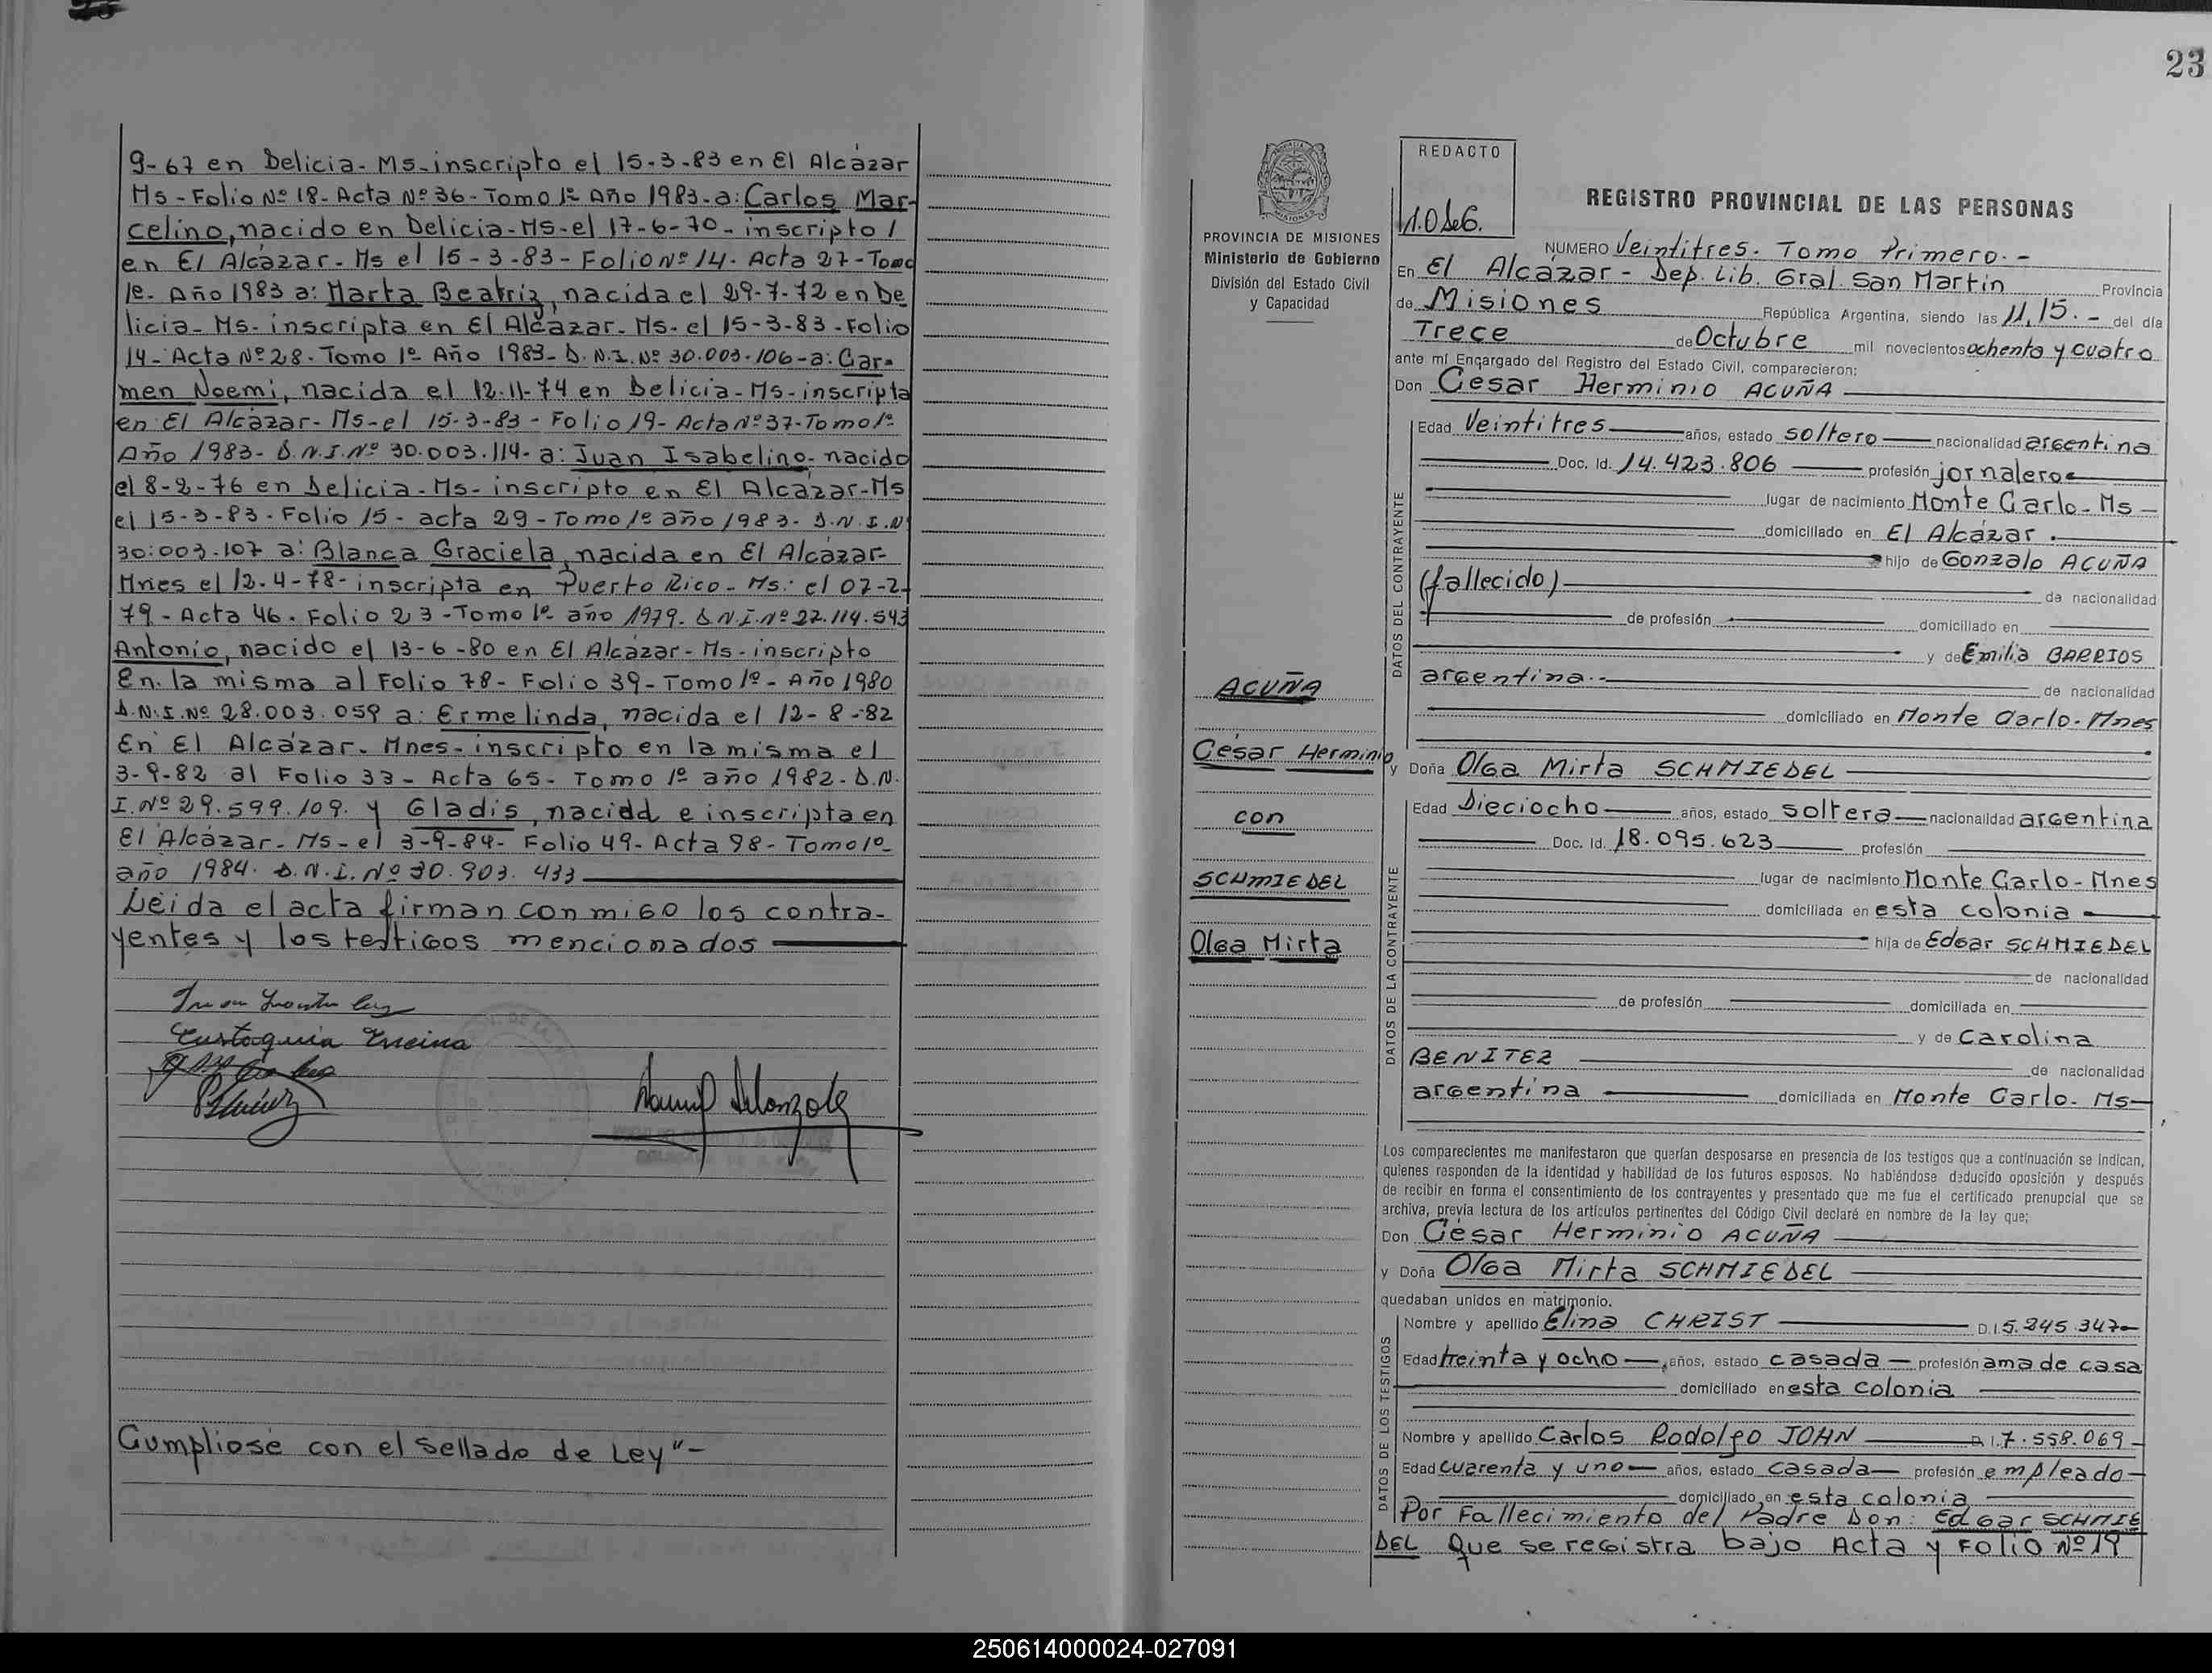 9-67 en Delicia - Ms - inscripto el 15-3-83 en El Alcázar
Ms - Folio Nº 18 - Acta Nº 36 - Tomo 1º Año 1983 - a: Carlos Mar-
celino, nacido en Delicia - Ms - el 17-6-70 - inscripto /
en El Alcázar - Ms el 15-3-83 - Folio Nº 14 - Acta 27 - Tomo
1º - Año 1983 a: Marta Beatriz, nacida el 29-7-72 en De
licia - Ms - inscripta en El Alcázar - Ms - el 15-3-83 - Folio
14 - Acta Nº 28 - Tomo 1º Año 1983 - D.N.I. Nº 30.003.106 - a: Car-
men Noemi, nacida el 12-11-74 en Delicia - Ms - inscripta
en El Alcázar - Ms - el 15-3-83 - Folio 19 - Acta Nº 37 - Tomo 1º
Año 1983 - D.N.I. Nº 30.003.114 - a: Juan Isabelino, nacido
el 8-2-76 en Delicia - Ms - inscripto en El Alcázar - Ms
el 15-3-83 - Folio 15 - acta 29 - Tomo 1º año 1983 - D.N.I.N
30.003.107 a: Blanca Graciela, nacida en El Alcázar
Mnes el 12-4-78 - inscripta en Puerto Rico - Ms: el 07-2-
79 - Acta 46 - Folio 23 - Tomo 1º año 1979. D.N.I. Nº 27.114.543
Antonio, nacido el 13-6-80 en El Alcázar - Ms - inscripto
En la misma al Folio 78 - Folio 39 - Tomo 1º - Año 1980
D.N.I. Nº 28.003.059 a: Ermelinda, nacida el 12-8-82
En El Alcázar - Mnes - inscripto en la misma el
3-9-82 al Folio 33 - Acta 65 - Tomo 1º año 1982 - D.N.
I. Nº 29.599.109. y Gladis, nacidd e inscripta en
El Alcázar - Ms - el 3-9-84 - Folio 49 - Acta 98 - Tomo 1º
año 1984. D.N.I. Nº 30.903.433
Leida el acta firman conmigo los contra-
yentes y los testigos mencionados
Eustoquia Encina
Cumpliose con el Sellado de Ley"-
23
REDACTO
PROVINCIA DE MISIONES
Ministerio de Gobierno
División del Estado Civil
y Capacidad
REGISTRO PROVINCIAL DE LAS PERSONAS
NUMERO Veintitres. - Tomo Primero. -
En El Alcázar - Dep. Lib. Gral. San Martin Provincia
de Misiones República Argentina, siendo las 11,15. - del día
Trece de Octubre mil novecientos ochenta y cuatro
ante mí Encargado del Registro del Estado Civil, comparecieron:
Don Cesar Herminio ACUÑA
DATOS DEL CONTRAYENTE
Edad Veintitres años, estado soltero nacionalidad argentina
Doc. Id. 14.423.806 profesión jornalero
lugar de nacimiento Monte Carlo - Ms
domiciliado en El Alcázar.
hijo de Gonzalo ACUÑA
(fallecido) de nacionalidad
de profesión domiciliado en
y de Emilia BARRIOS
argentina. - de nacionalidad
domiciliado en Monte Carlo - Mnes
ACUÑA
César Herminio
con
SCHMIEDEL
Olga Mirta
y Doña Olga Mirta SCHMIEDEL
DATOS DE LA CONTRAYENTE
Edad Dieciocho años, estado soltera nacionalidad argentina
Doc. Id. 18.095.623 profesión
lugar de nacimiento Monte Carlo - Mnes
domiciliada en esta colonia
hija de Edgar SCHMIEDEL
de nacionalidad
de profesión domiciliada en
y de Carolina
BENITEZ de nacionalidad
argentina domiciliada en Monte Carlo - Ms
Los comparecientes me manifestaron que querían desposarse en presencia de los testigos que a continuación se indican,
quienes responden de la identidad y habilidad de los futuros esposos. No habiéndose deducido oposición y después
de recibir en forma el consentimiento de los contrayentes y presentado que me fue el certificado prenupcial que se
archiva, previa lectura de los artículos pertinentes del Código Civil declaré en nombre de la ley que;
Don César Herminio ACUÑA
y Doña Olga Mirta SCHMIEDEL
quedaban unidos en matrimonio.
DATOS DE LOS TESTIGOS
Nombre y apellido Elina CHRIST D.I. 5.245.347
Edad treinta y ocho años, estado casada profesión ama de casa
domiciliado en esta colonia
Nombre y apellido Carlos Rodolfo JOHN D.I. 7.558.069
Edad cuarenta y uno años, estado casada profesión empleado
domiciliado en esta colonia
Por Fallecimiento del Padre Don: Edgar SCHMIE
DEL Que se registra bajo Acta y Folio Nº 19
250614000024-027091